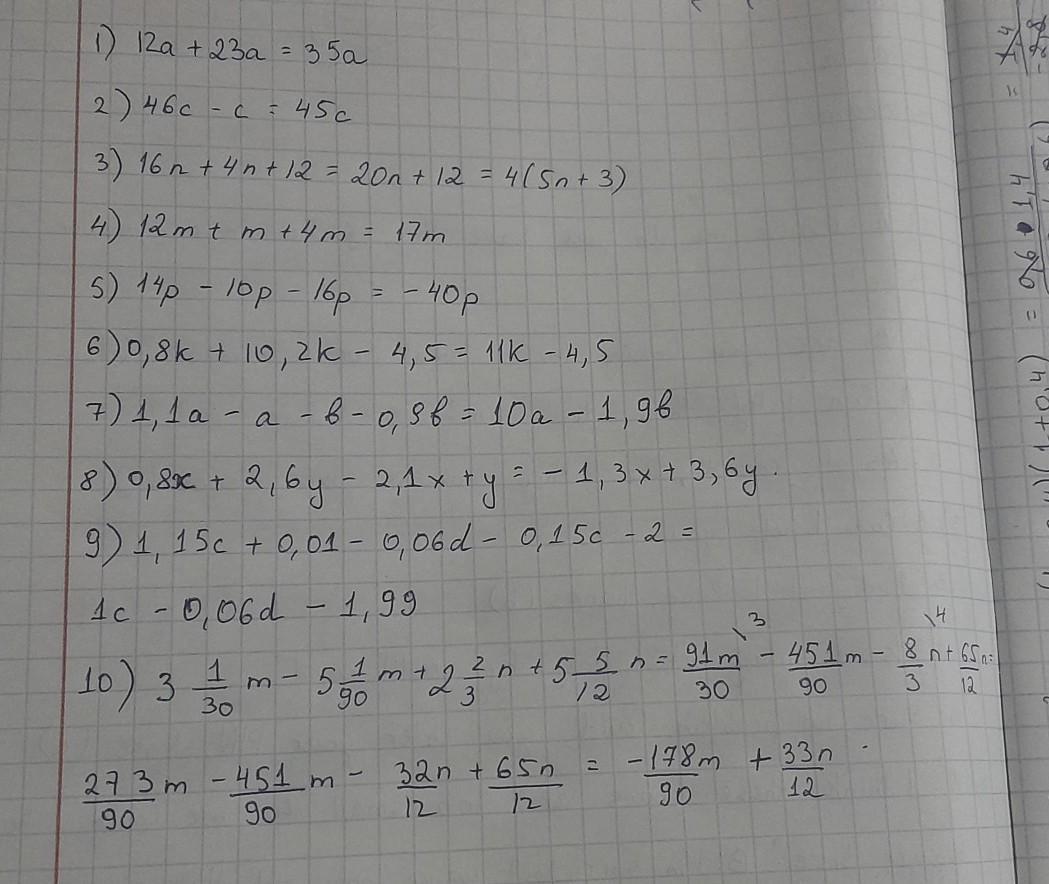 1) 12a + 23a = 35a
2) 46c - c = 45c
3) 16n + 4n + 12 = 20n + 12 = 4(5n + 3)
4) 12m + m + 4m = 17m
5) 14p - 10p - 16p = - 40p
6) 0,8k + 10,2k - 4,5 = 11k - 4,5
7) 1,1a - a - b - 0,9b = 10a - 1,9b
8) 0,8x + 2,6y - 2,1x + y = - 1,3x + 3,6y.
9) 1,15c + 0,01 - 0,06d - 0,15c - 2 =
1c - 0,06d - 1,99
10) 3 1/30 m - 5 1/90 m + 2 2/3 n + 5 5/12 n = 91m/30 \3 - 451/90 m - 8/3 \4 n + 65n/12 =
273/90 m - 451/90 m - 32n/12 + 65n/12 = -178/90 m + 33n/12.